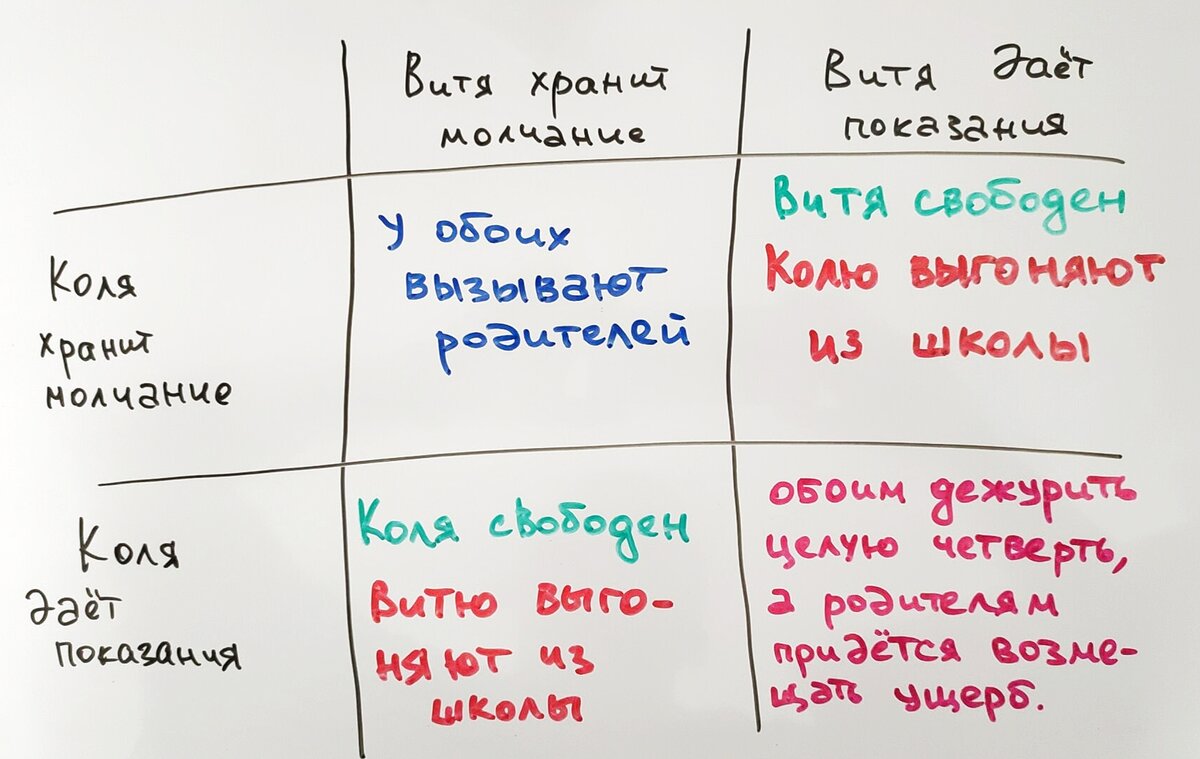 Витя хранит
молчание
Витя даёт
показания
Коля
хранит
молчание
У обоих
вызывают
родителей
Витя свободен
Колю выгоняют
из школы
Коля
даёт
показания
Коля свободен
Витю выго-
няют из
школы
обоим дежурить
целую четверть,
а родителям
придётся возме-
щать ущерб.